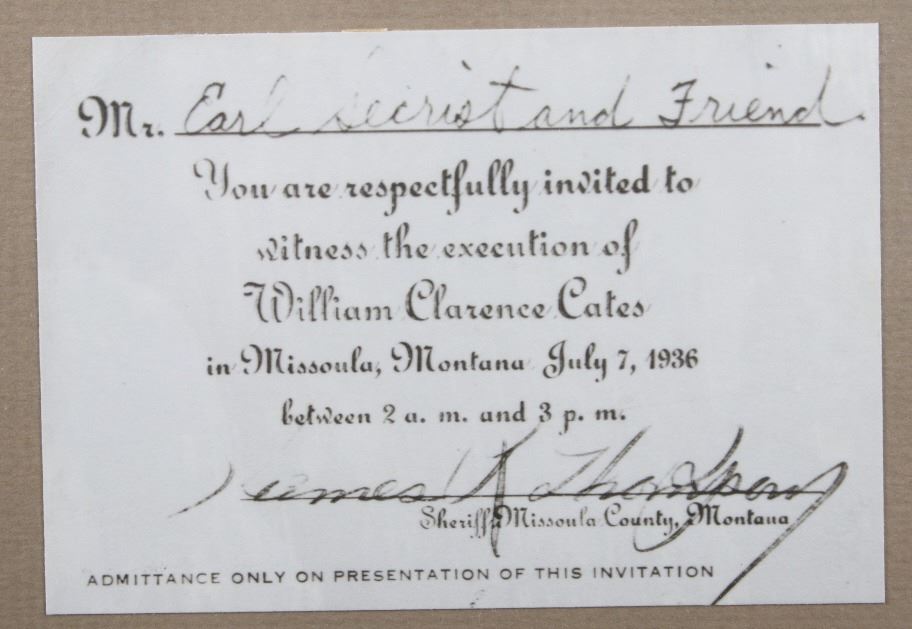 Mr. Earl Secrist and Friend.
You are respectfully invited to
witness the execution of
William Clarence Cates
in Missoula, Montana July 7, 1936
between 2 a. m. and 3 p. m.
James R Thompson
Sheriff, Missoula County, Montana
ADMITTANCE ONLY ON PRESENTATION OF THIS INVITATION